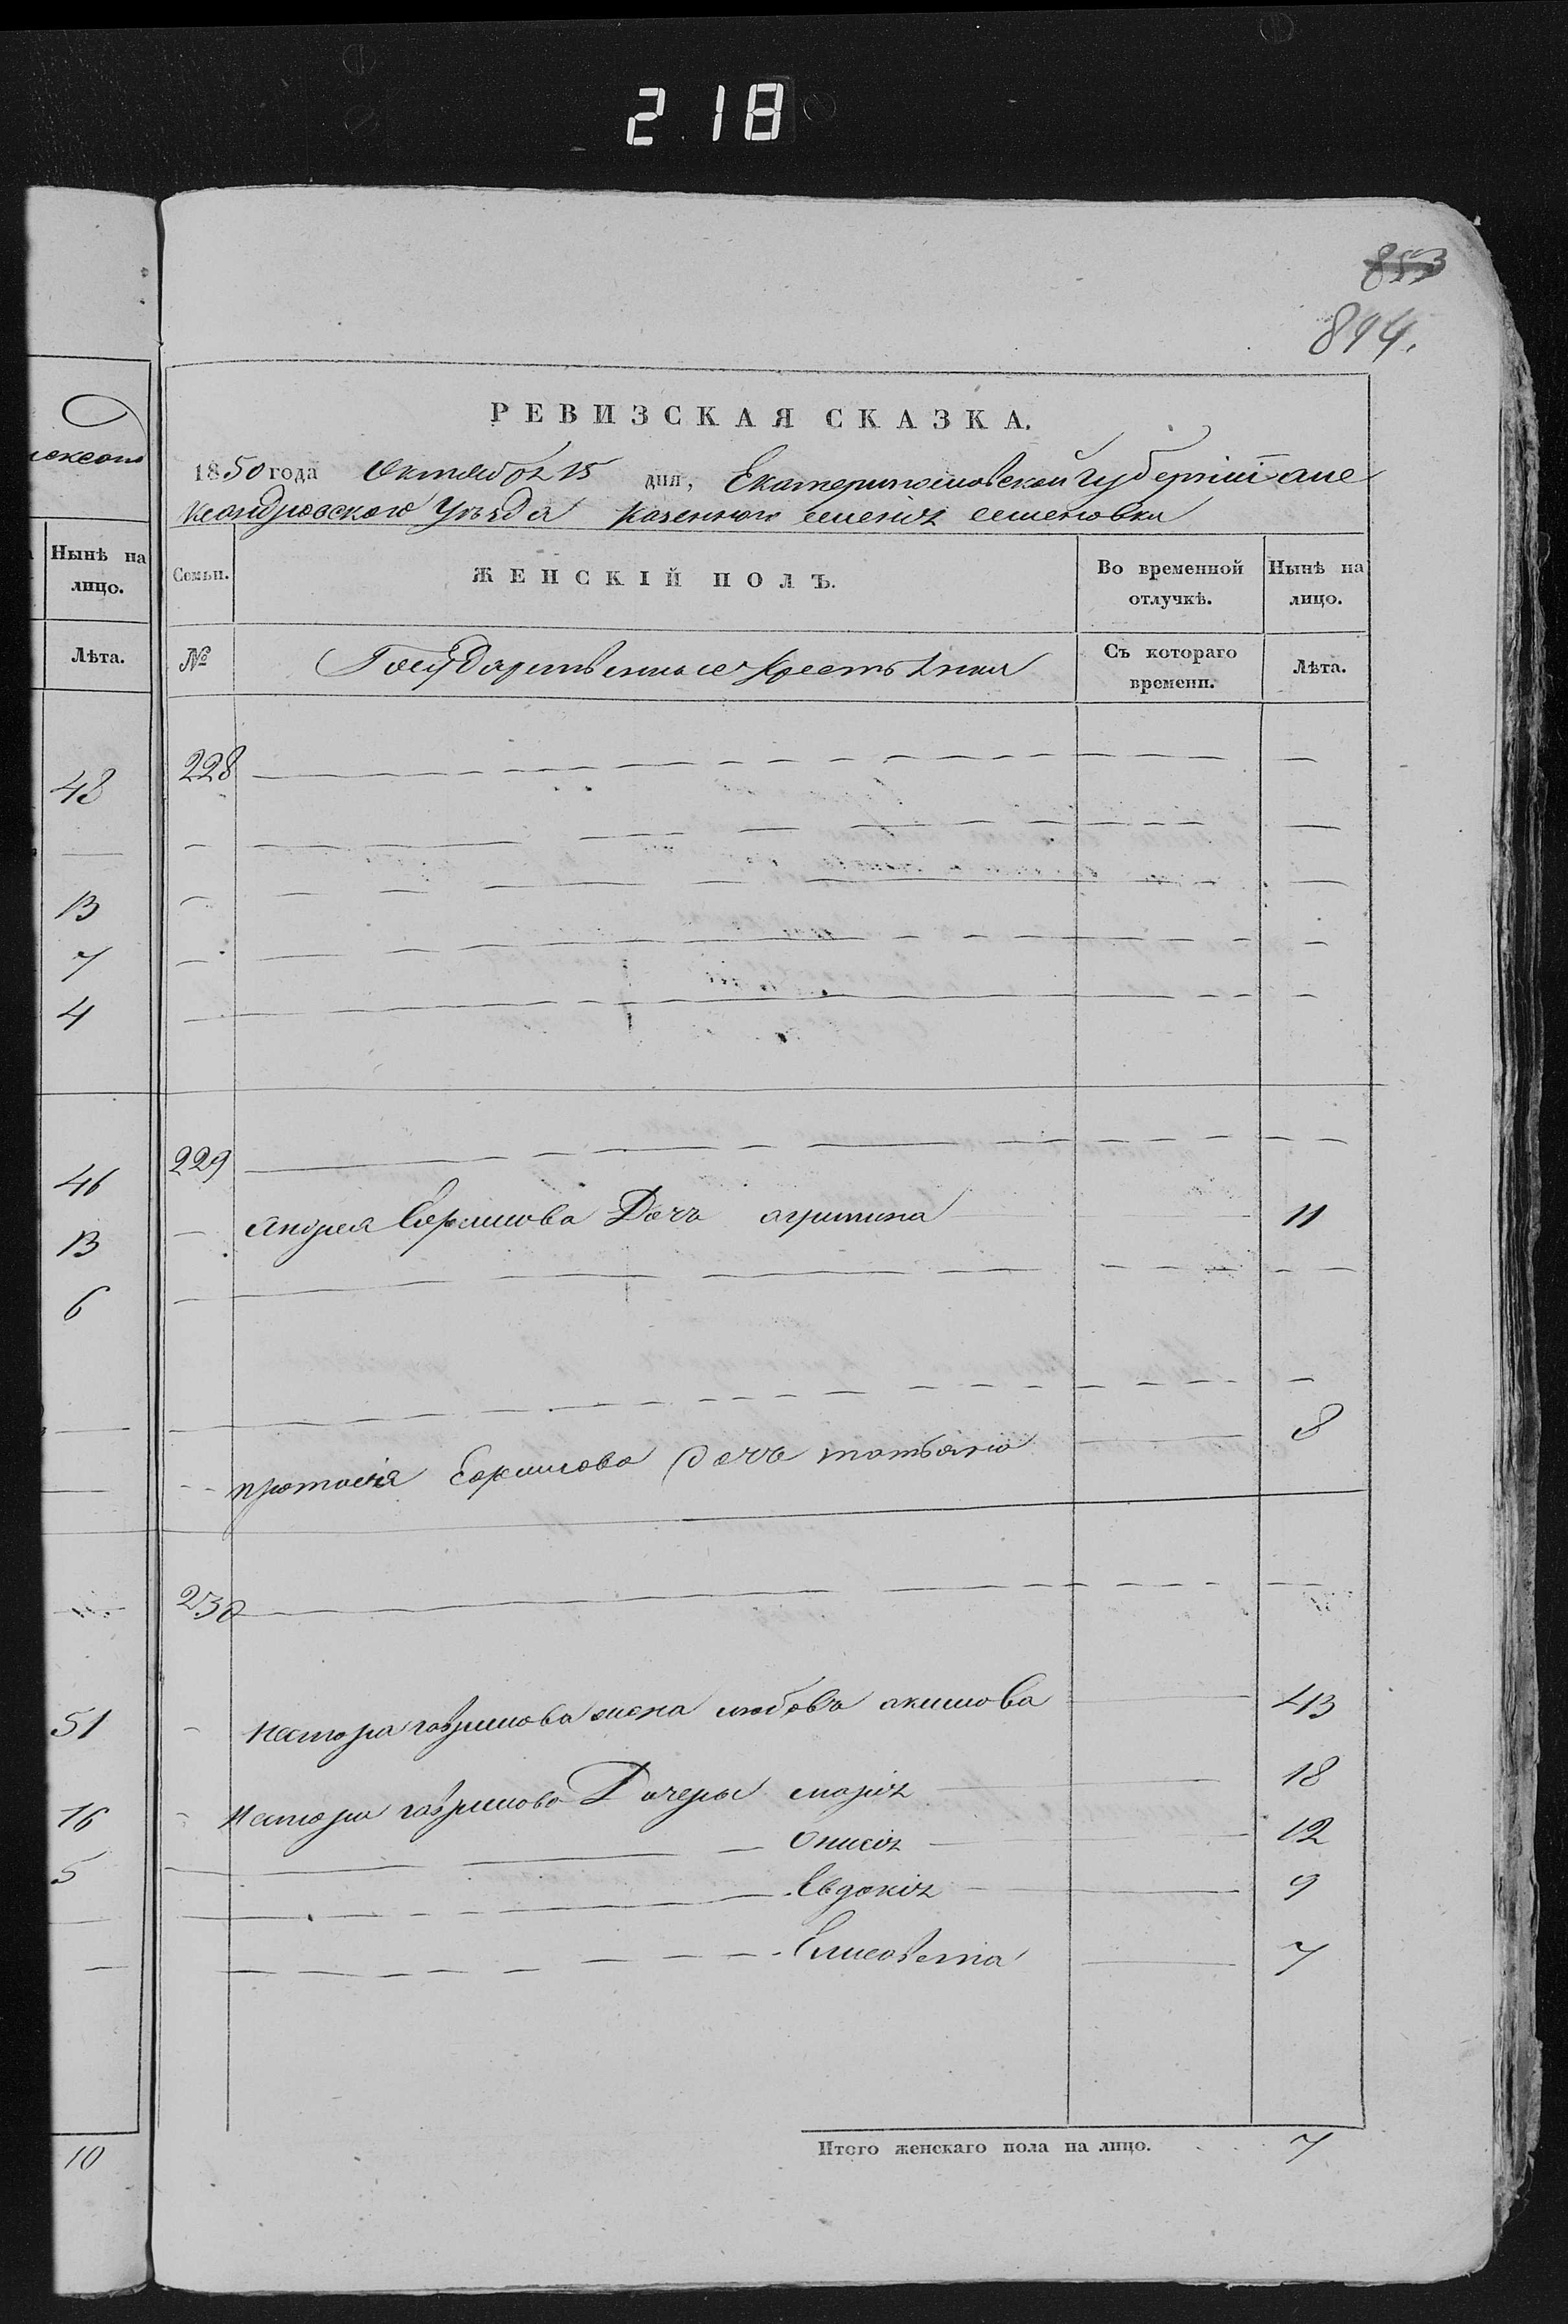 2 18
853
894.
РЕВИЗСКАЯ СКАЗКА.
1850 года Октября 15 дня, Екатеринославской губерніи Але
ксандровского Уѣзда Казенного селенія Семеновки
Ныне на лицо.
Лѣта.
48
13
7
4
46
13
6
51
16
5
10
Семьи. ЖЕНСКІЙ ПОЛЪ. Во временной отлучкѣ. Нынѣ на лицо.
№ Государственные крестьяни Съ котораго времени. Лѣта.
228
229
Андрея Ефимова Дочь агрипина 11
протасия Ефимова дочь татьяна 8
230
Нестора гаврилова жена любовь акимова 43
Нестора гаврилова Дочеры марія 18
Онисія 12
Евдокія 9
Елисавета 7
Итого женскаго пола на лицо. 7